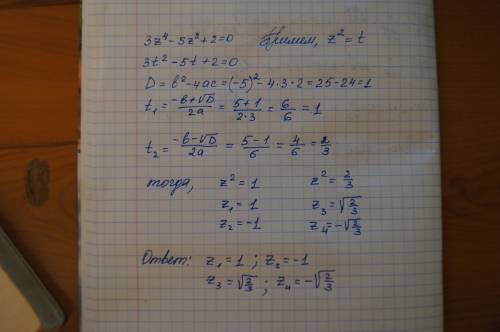 3z⁴-5z²+2=0 Примем, z²=t
3t²-5t+2=0
D=b²-4ac=(-5)²-4·3·2=25-24=1
t₁=(-b+√D)/2a=(5+1)/(2·3)=6/6=1
t₂=(-b-√D)/2a=(5-1)/6=4/6=2/3
тогда, z²=1 z²=2/3
z₁=1 z₃=√(2/3)
z₂=-1 z₄=-√(2/3)
Ответ: z₁=1; z₂=-1
z₃=√(2/3); z₄=-√(2/3)